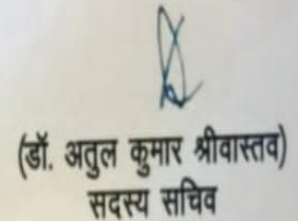 (डॉ. अतुल कुमार श्रीवास्तव)
सदस्य सचिव